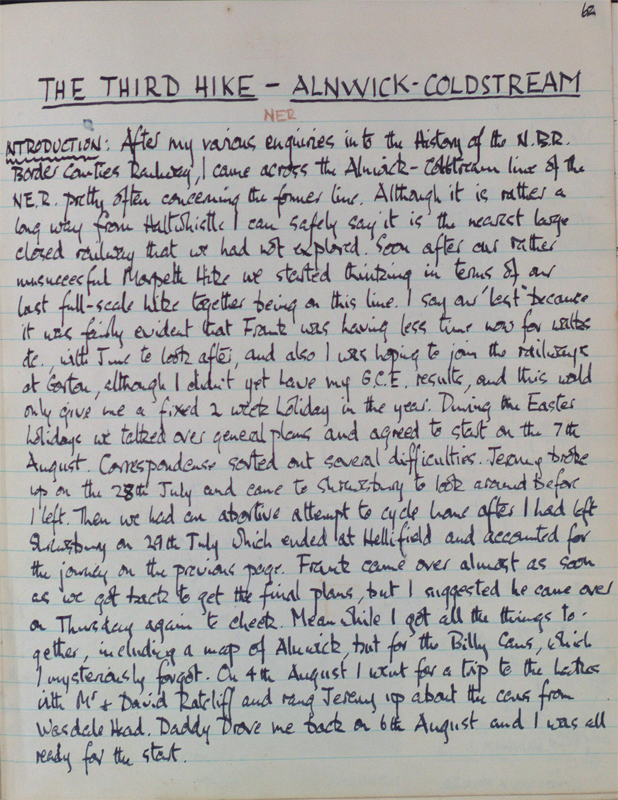 62
THE THIRD HIKE – ALNWICK-COLDSTREAM
NER
INTRODUCTION: After my various enquiries into the History of the N.B.R.
Border Counties Railway, I came across the Alnwick-Coldstream line of the
N.E.R. pretty often concerning the former line. Although it is rather a
long way from Haltwhistle I can safely say it is the nearest large
closed railway that we had not explored. Soon after our rather
unsuccesful Morpeth Hike we started thinking in terms of our
last full-scale hike together being on this line. I say our "last" because
it was fairly evident that Frank was having less time now for walks
etc. with June to look after, and also I was hoping to join the railways
at Gorton, although I didn't yet have my G.C.E. results, and this would
only give me a fixed 2 week holiday in the year. During the Easter
holidays we talked over general plans and agreed to start on the 7th
August. Correspondense sorted out several difficulties. Jeremy broke
up on the 28th July and came to Shrewsbury to look around before
I left. Then we had an abortive attempt to cycle home after I had left
Shrewsbury on 29th July which ended at Hellifield and accounted for
the journey on the previous page. Frank came over almost as soon
as we got back to get the final plans, but I suggested he came over
on Thursday again to check. Meanwhile I got all the things to-
gether, including a map of Alnwick, but for the Billy Cans, which
I mysteriously forgot. On 4th August I went for a trip to the Lakes
with Mr + David Ratcliff and rang Jeremy up about the cans from
Wasdale Head. Daddy Drove me back on 6th August and I was all
ready for the start.